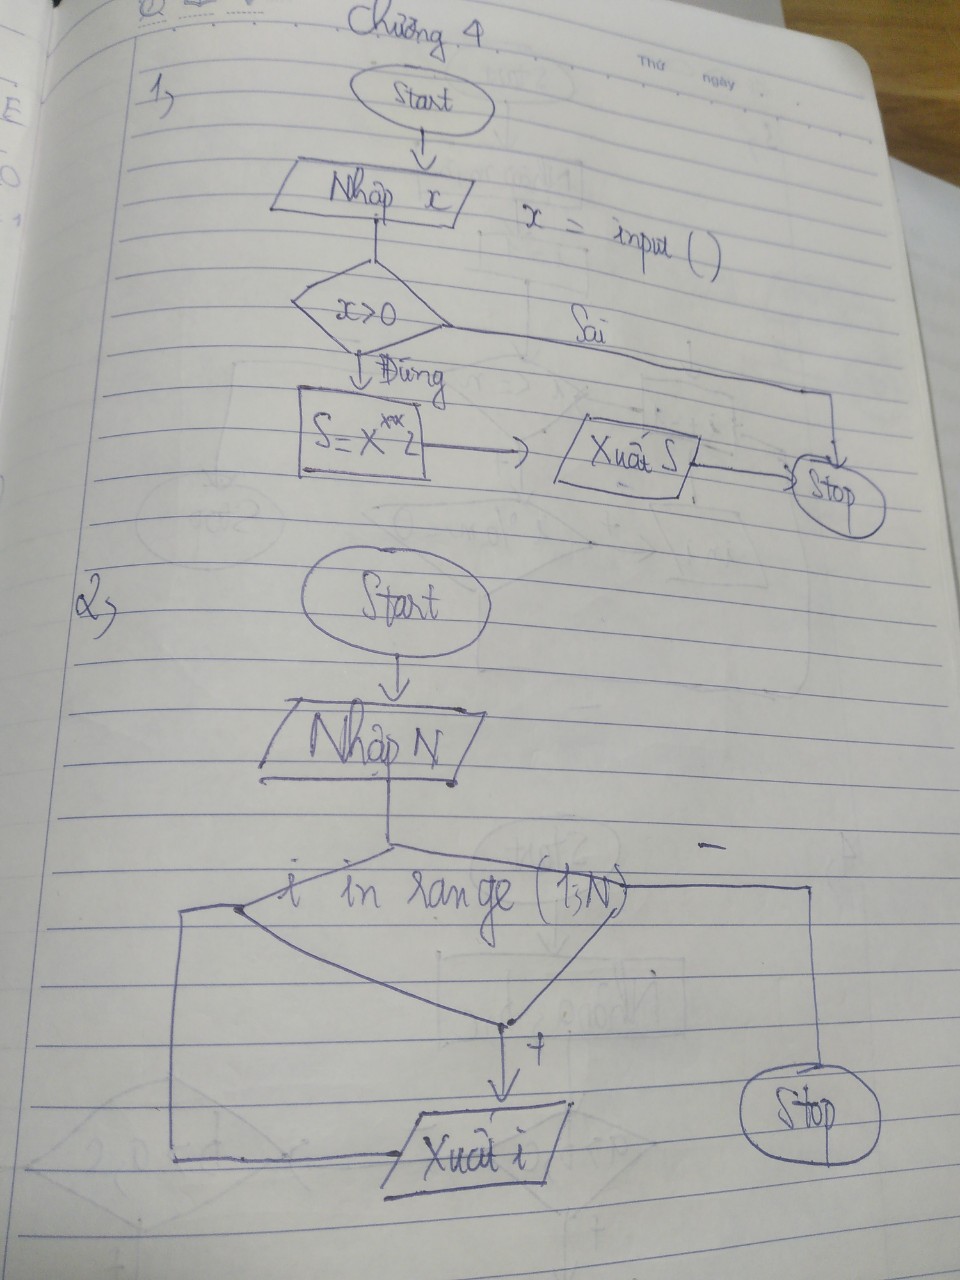 Chương 4
Thứ ngày
1,
Start
Nhập x
x = input ()
x>0
Sai
Đúng
S=x**2
Xuất S
Stop
2,
Start
Nhập N
-
i in range (1;N)
+
Stop
Xuất i